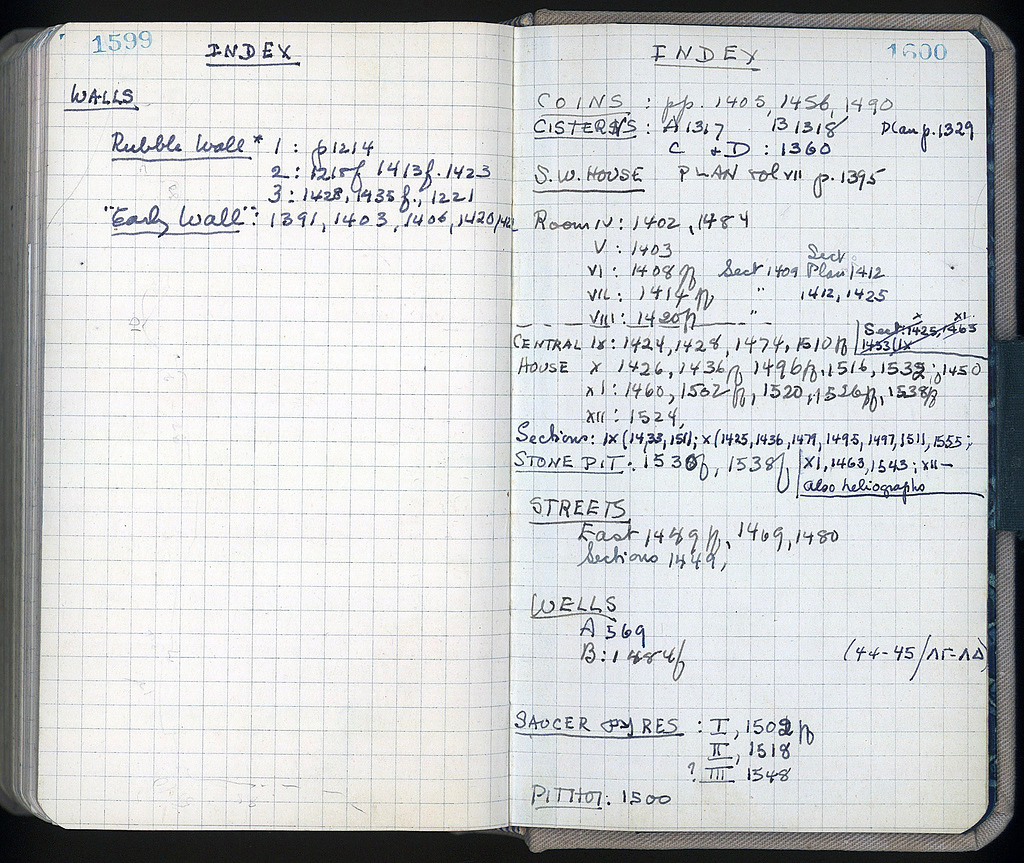 1599
INDEX
WALLS
Rubble Wall* 1 : p1214
2 : 1218f 1413f. 1423
3 : 1428, 1435f., 1221
"Early Wall" : 1391, 1403, 1406, 1420/
INDEX 1600
COINS : pp. 1405, 1456, 1490
CISTERNS : A 1317 B 1318 Plan p. 1329
C + D : 1360
S.W. HOUSE PLAN vol VII p. 1395
Room IV : 1402, 1484
V : 1403
Sect
VI : 1408ff Sect 1409 Plan 1412
VII : 1414ff " 1412, 1425
VIII : 1420ff "
X XI
Sect: 1425, 1463
CENTRAL IX : 1424, 1428, 1474, 1510ff 1433 (IX
HOUSE X 1426, 1436ff 1496ff, 1516, 1532; 1450
XI : 1460, 1502ff, 1520, 1526ff, 1538ff
XII : 1524,
Sections: IX (1433, 1511; X (1425, 1436, 1479, 1495, 1497, 1511, 1555;
STONE PIT : 1530f, 1538f XI, 1463, 1543; XII —
also heliographs
STREETS
East 1449ff, 1469, 1480
Sections 1449,
WELLS
A 569
B : 1484f (44-45/ΛΓ-ΛΔ)
SAUCER PYRES : I, 1502ff
II, 1518
? III 1548
PITHOI : 1500